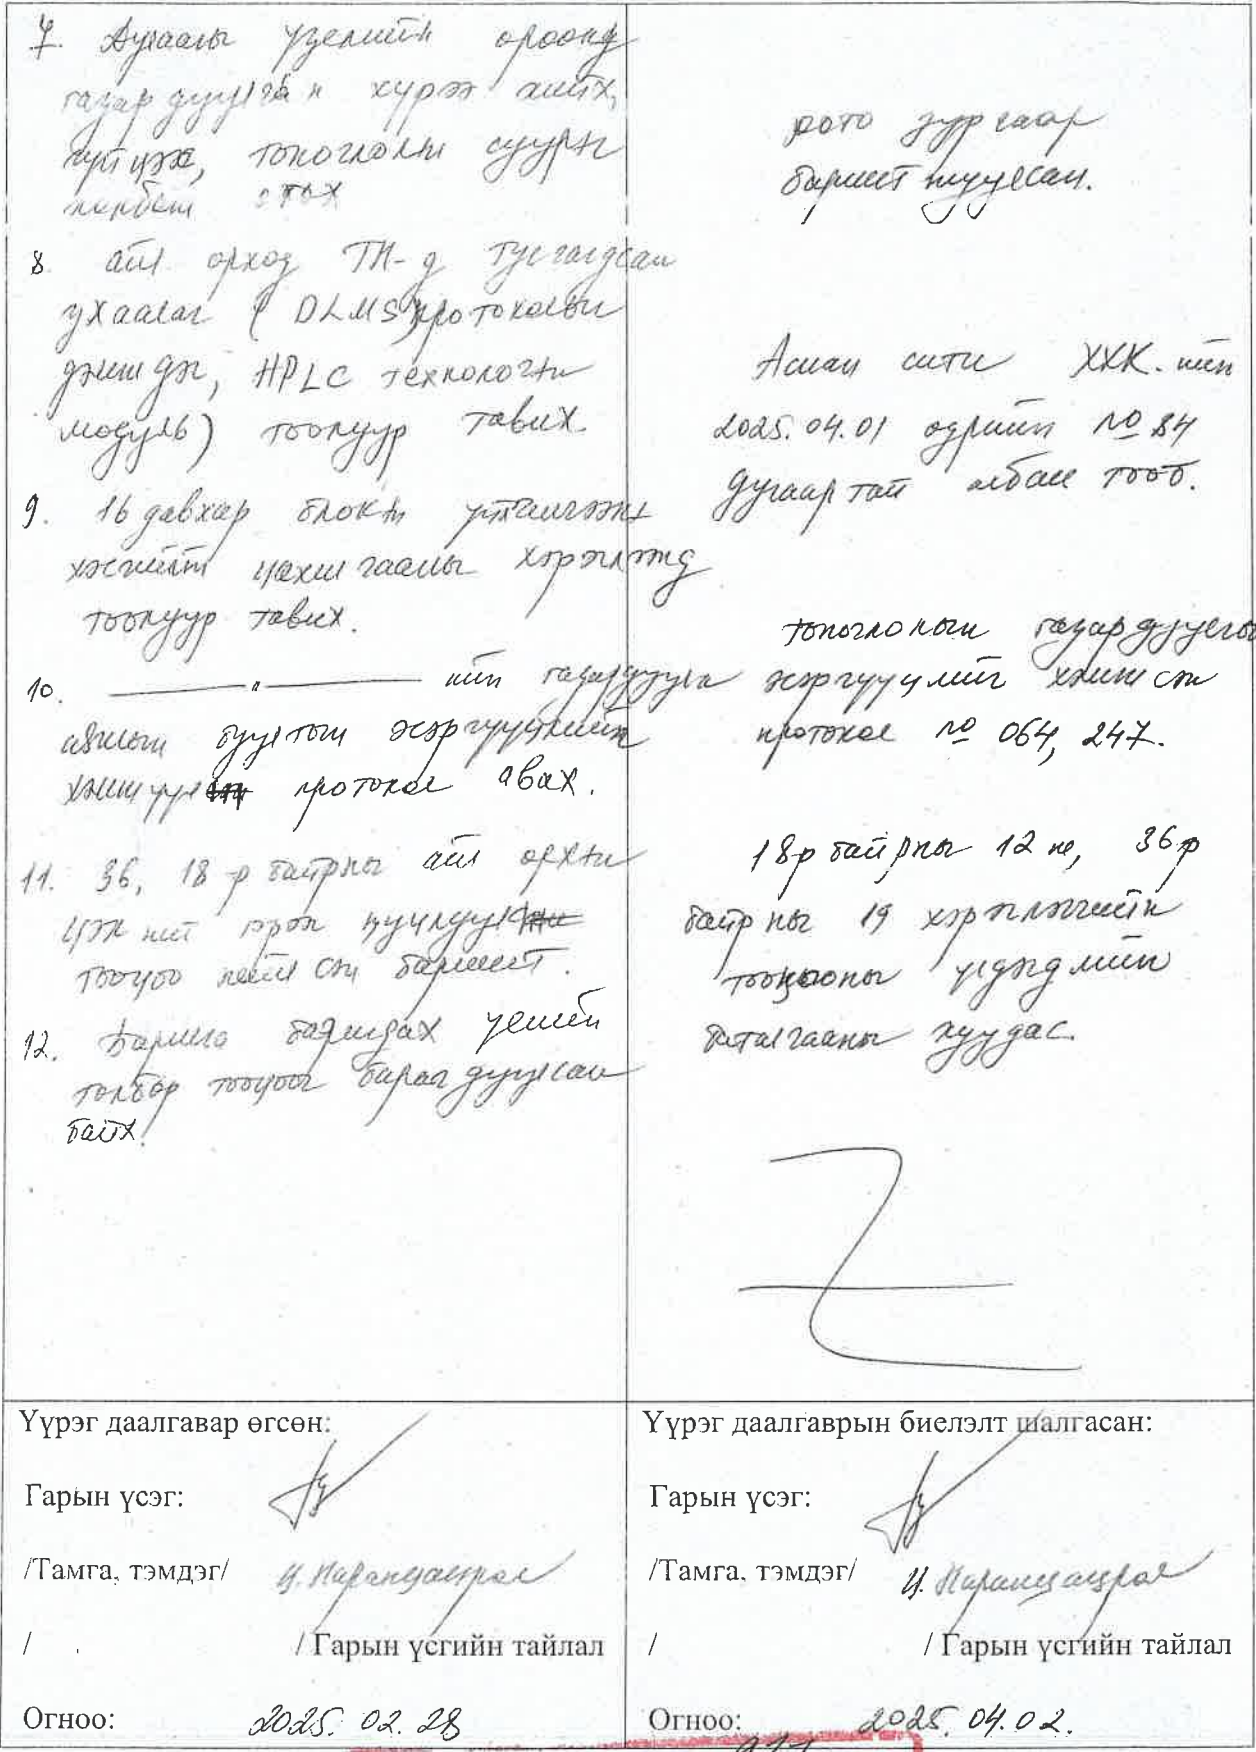 7. Дулааны узелийн өрөөнд
газардуулган хүрээ хийх,
гүйцээх, тоноглолын суурь
холбоц
8. айл өрхөд ТН-д тусгагдсан
ухаалаг (DLMS протоколын
дэмждэг, HPLC технологийн
модуль) тоолуур тавих.
9. 16 давхар блокын үйлчилгээний
хэсгийн цахилгааны хэрэглээнд
тоолуур тавих.
10. ——— " ——— ийн газардуулга
аянгын буултын эсэргүүцлийн
хэмжүүл протокол авах.
11. 36, 18-р байрны айл өрхийн
ЦЭХ-ний гэрээ
тооцоо нийлсэн баримт.
12. Барилга баригдах үеийн
төлбөр тооцоог барагдуулсан
байх.
фото зургаар
баримтжуулсан.
Асман сити ХХК-ийн
2025.04.01 өдрийн № 84
дугаартай албан тоот.
тоноглолын газардуулгын
эсэргүүцлийг хэмжсэн
протокол № 064, 247.
18р байрны 12 ис, 36р
байрны 19 хэрэглэгчийн
тооцооны үлдэгдлийн
баталгааны хуудас.
Үүрэг даалгавар өгсөн:
Гарын үсэг:
/Тамга, тэмдэг/ Ц. Наранцацрал
/ / Гарын үсгийн тайлал
Огноо: 2025. 02. 28
Үүрэг даалгаврын биелэлт шалгасан:
Гарын үсэг:
/Тамга, тэмдэг/ Ц. Наранцацрал
/ / Гарын үсгийн тайлал
Огноо: 2025. 04. 02.